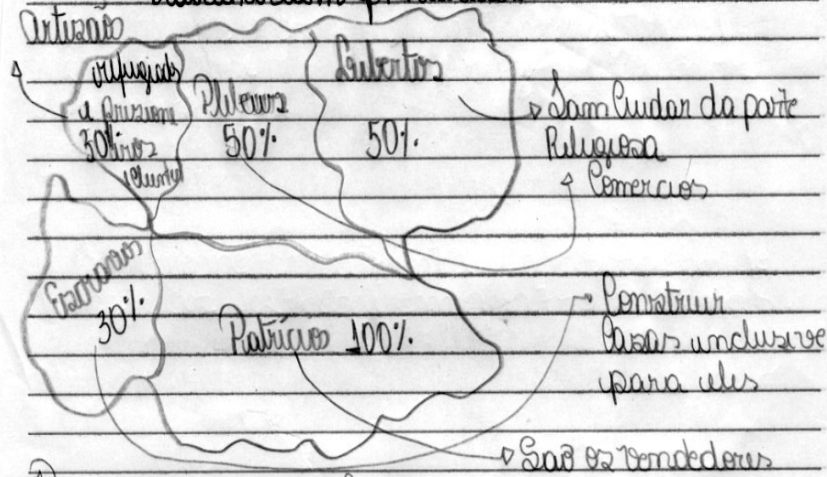 artizão
refugiados
e prizionei
30% iros
Plebeus
50%
Libertos
50%
Sam Cuidar da parte
Religiosa
Comercios
Escravos
30%
Patrícios 100%
Construir
Casas inclusive
para eles
Saõ os Vendedores